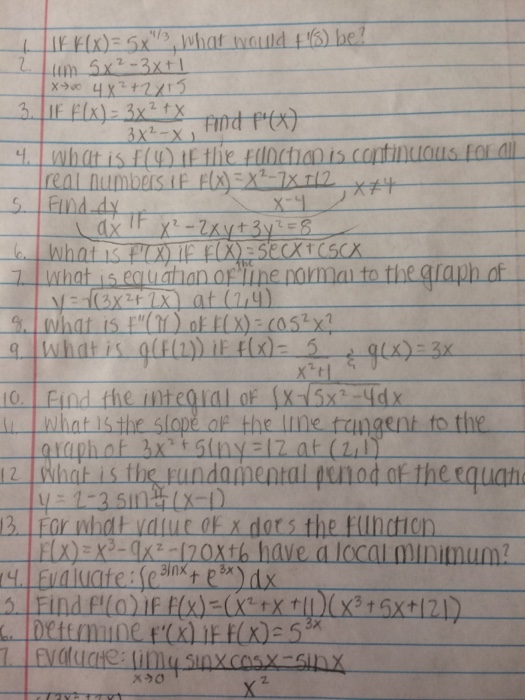 1. If f(x) = 5x^4/3, what would f'(8) be?
2. lim 5x² - 3x + 1
x→∞ 4x² + 2x + 5
3. If f(x) = 3x² + x
3x² - x, find f'(x)
4. what is f(4) if the function is continuous for all
real numbers if f(x) = x² - 7x + 12, x ≠ 4
x - 4
5. Find dy
dx if x² - 2xy + 3y² = 8
6. What is f'(x) if f(x) = secx + cscx
7. what is equation of the line normal to the graph of
y = √(3x² + 2x) at (2,4)
8. what is f"(π) of f(x) = cos²x?
9. What is g(f(2)) if f(x) = 5 & g(x) = 3x
x² + 1
10. Find the integral of ∫x√5x² - 4 dx
11. What is the slope of the line tangent to the
graph of 3x² + 5lny = 12 at (2,1)
12 What is the fundamental period of the equatio
y = 2 - 3 sin π/4 (x - 1)
13. For what value of x does the function
f(x) = x³ - 9x² - 120x + 6 have a local minimum?
14. Evaluate: ∫(e^3lnx + e^3x) dx
5. Find f'(0) if f(x) = (x² + x + 11)(x³ + 5x + 121)
6. Determine f'(x) if f(x) = 5^3x
7. Evaluate: lim 4 sinxcosx - sinx
x→0 x²